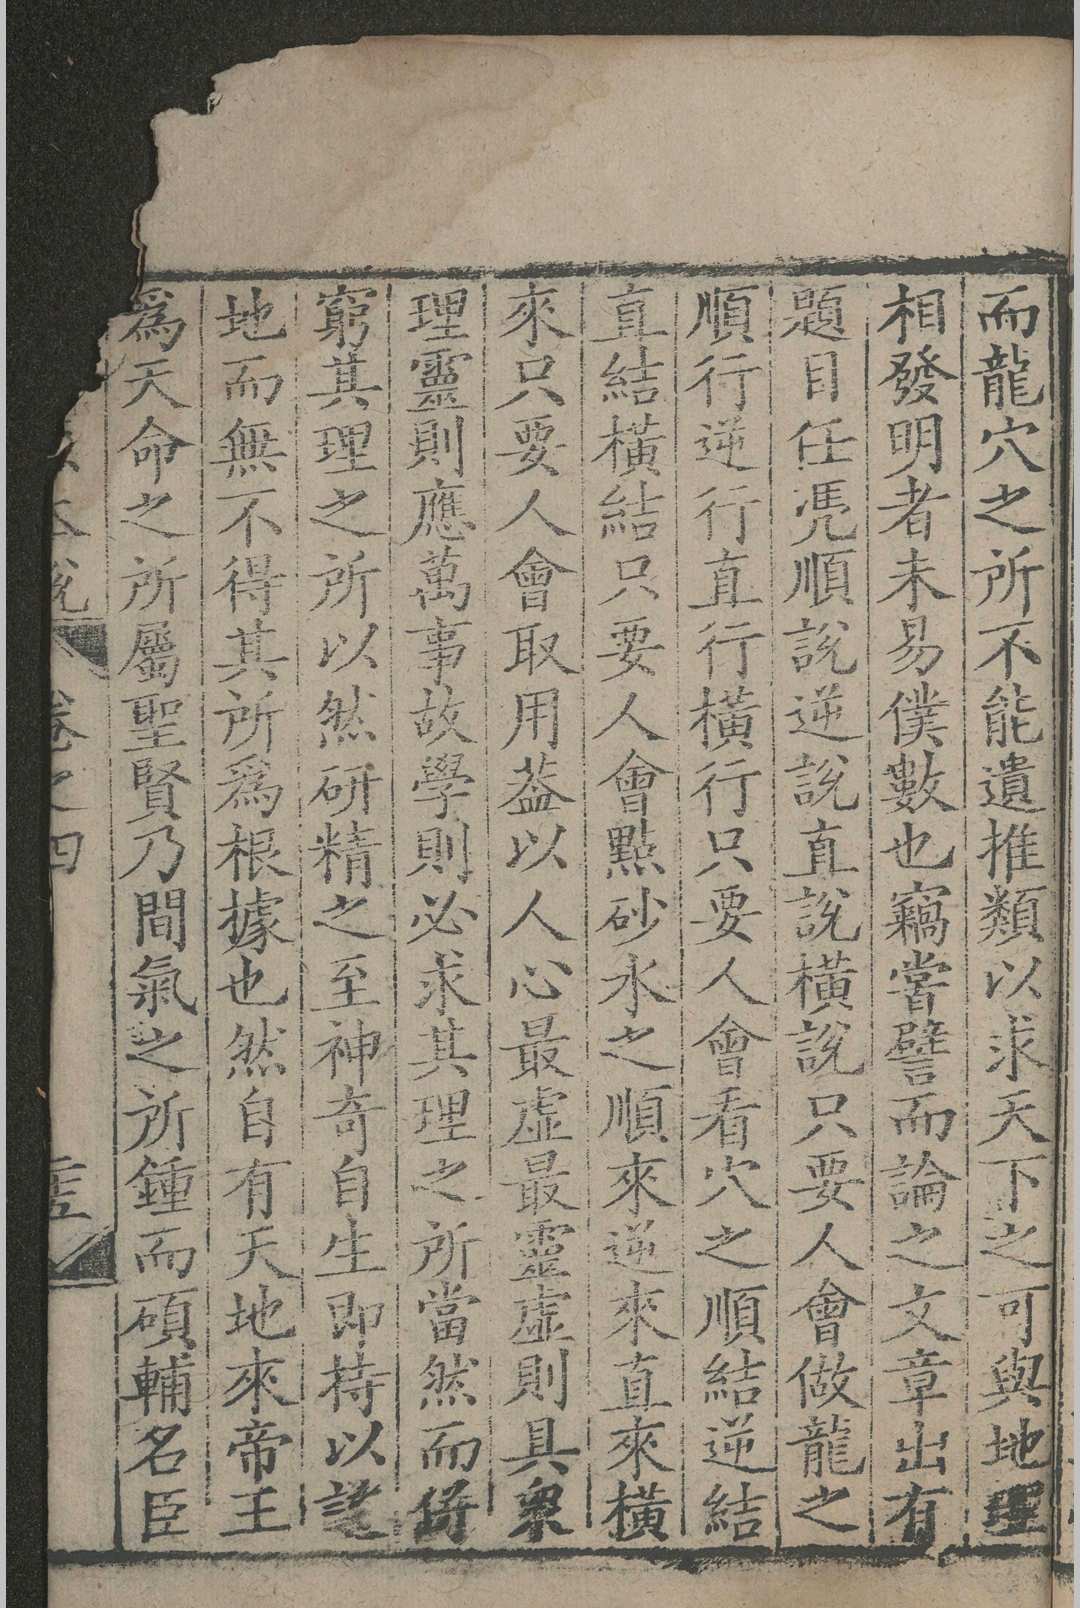 而龍穴之所不能遺推類以求天下之可與地理
相發明者未易僕數也竊嘗譬而論之文章出有
題目任凴順說逆說直說橫說只要人會做龍之
順行逆行直行橫行只要人會看穴之順結逆結
直結橫結只要人會點砂水之順來逆來直來橫
來只要人會取用葢以人心最虛最靈虛則具衆
理靈則應萬事故學則必求其理之所當然而
窮其理之所以然研精之至神奇自生即持以
地而無不得其所爲根據也然自有天地來帝王
爲天命之所屬聖賢乃間氣之所鍾而碩輔名臣
本說 卷之四